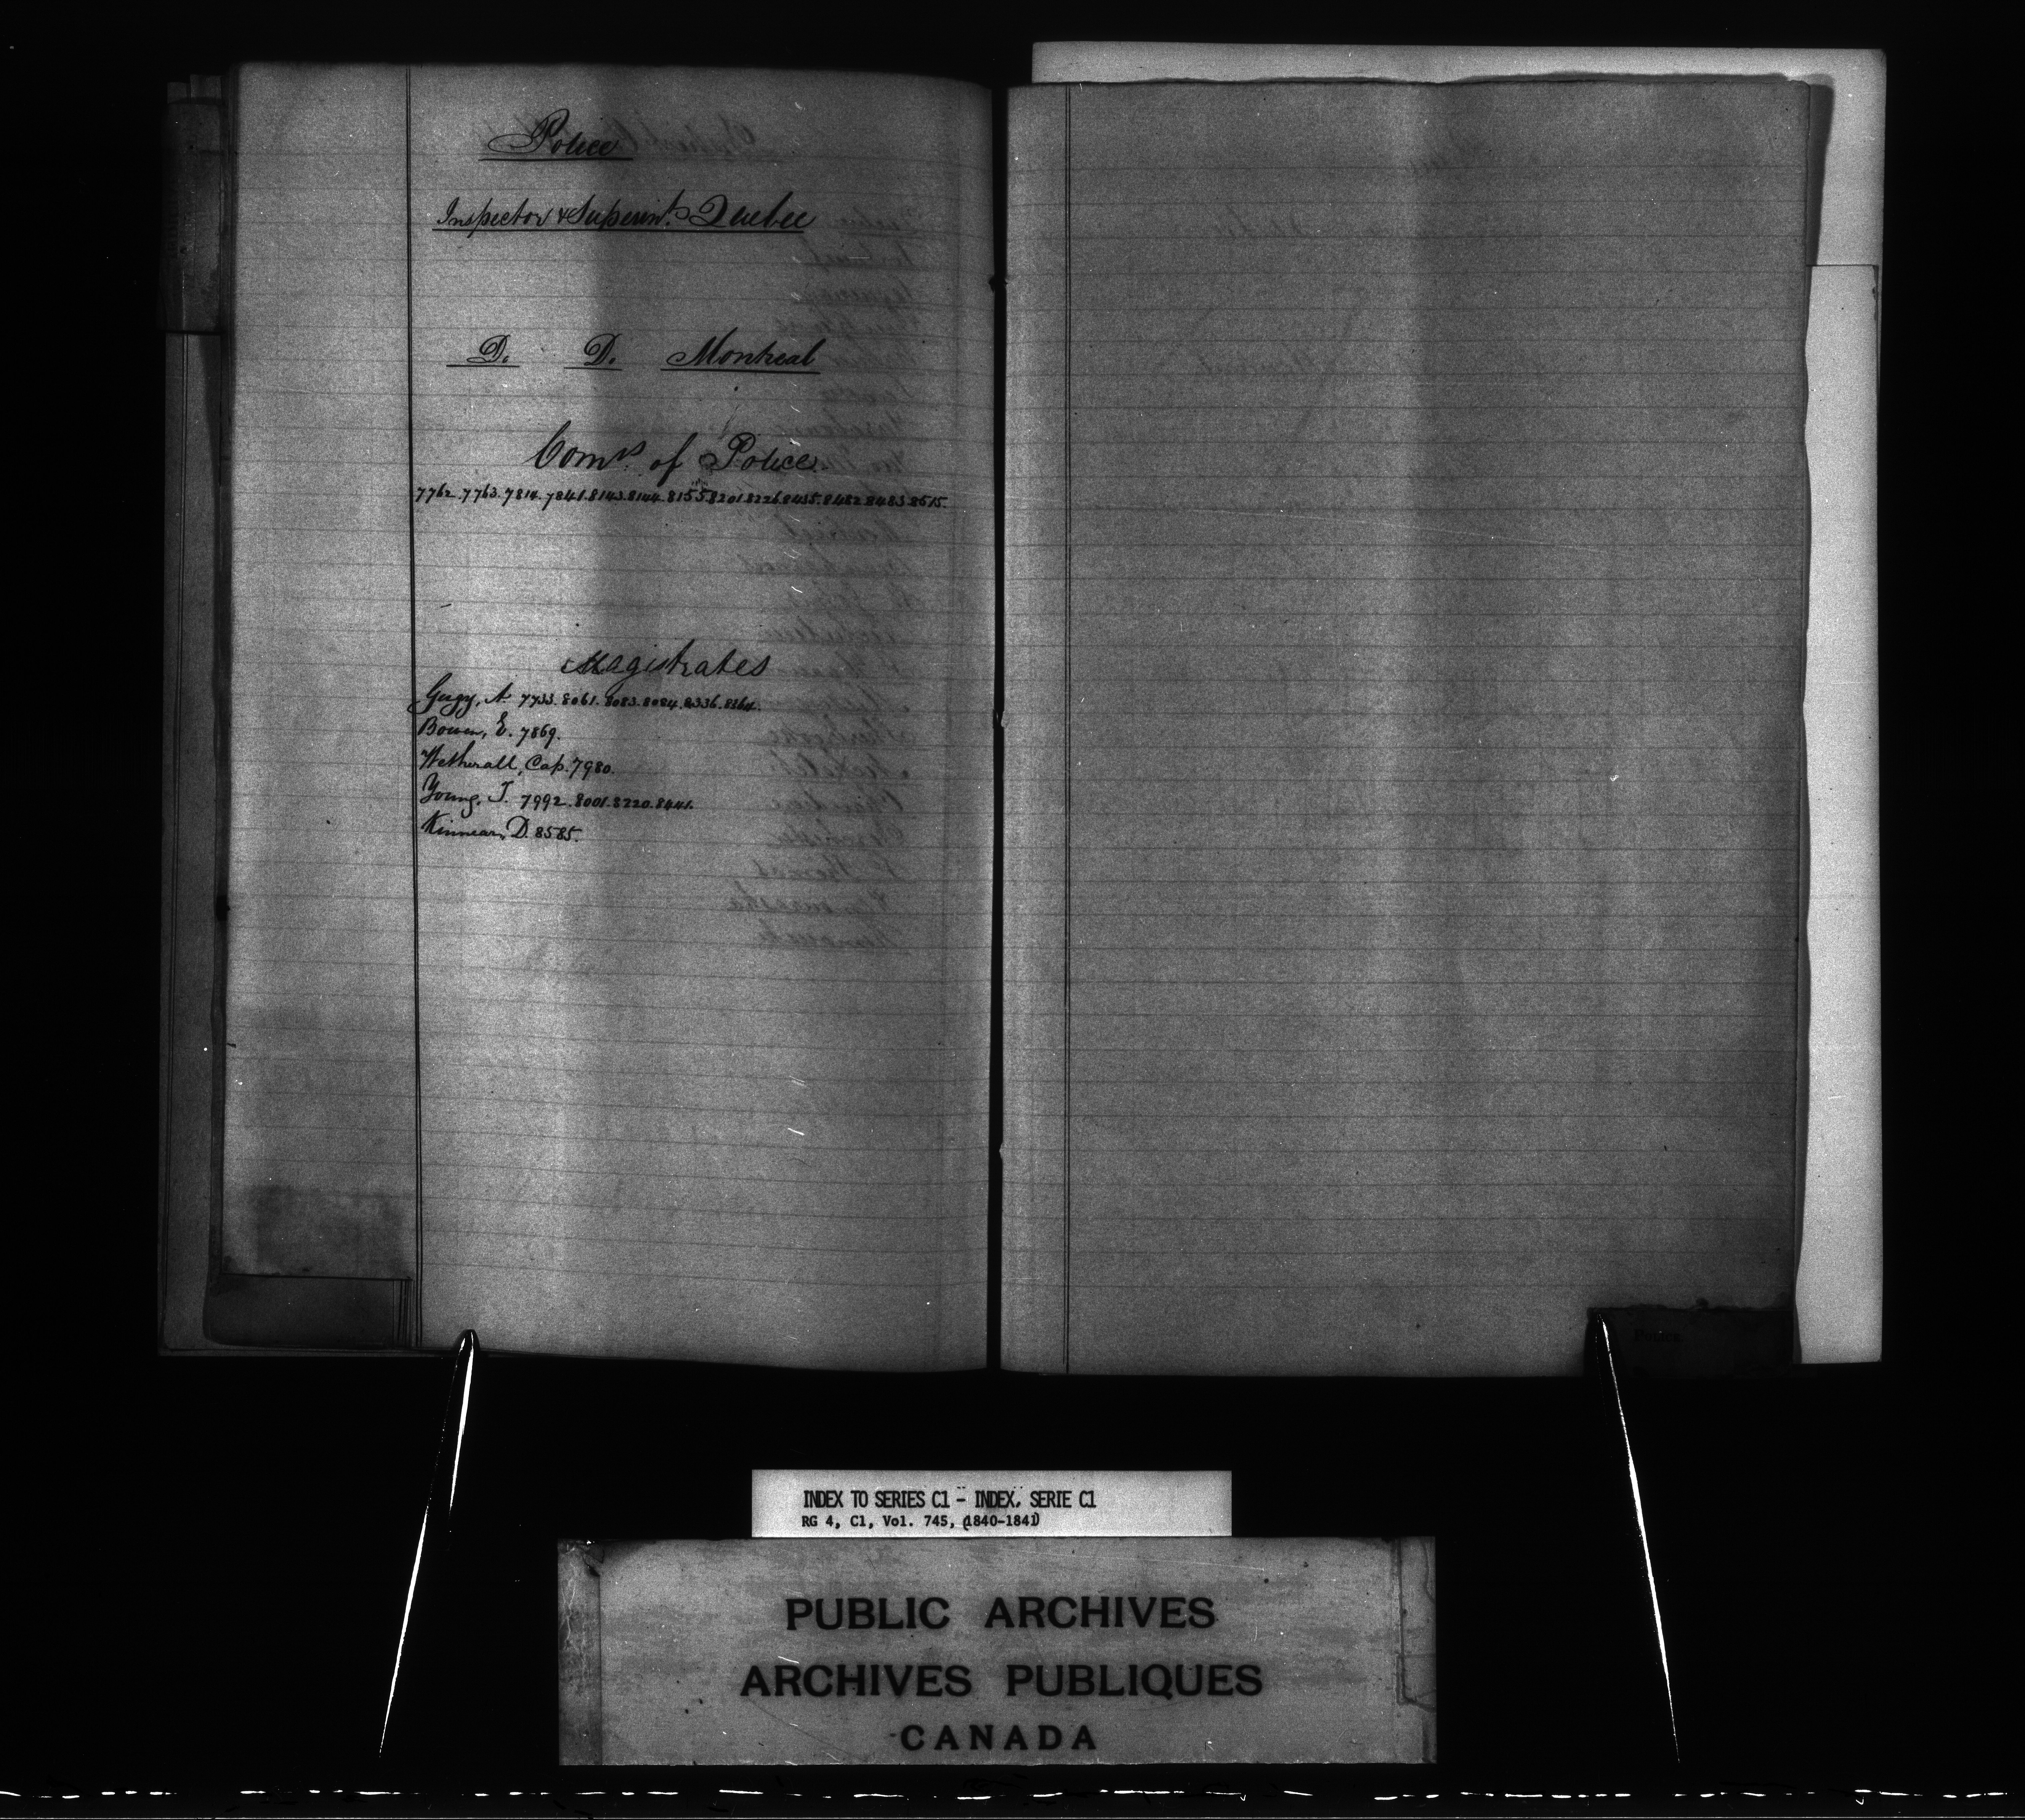 Police
Inspector & Superint. Quebec
D. D. Montreal
Comrs. of Police
7762. 7763. 7814. 7841. 8143. 8144. 8155. 8201. 8226. 8435. 8482. 8483. 8515.
Magistrates
Gugy, A. 7733. 8061. 8083. 8084. 8336. 8364.
Bowen, E. 7869.
Wetherall, Cap. 7980.
Young, J. 7992. 8001. 8220. 8441.
Kinnear, D. 8585.
INDEX TO SERIES C1 - INDEX, SERIE C1
RG 4, C1, Vol. 745, (1840-1841)
PUBLIC ARCHIVES
ARCHIVES PUBLIQUES
CANADA